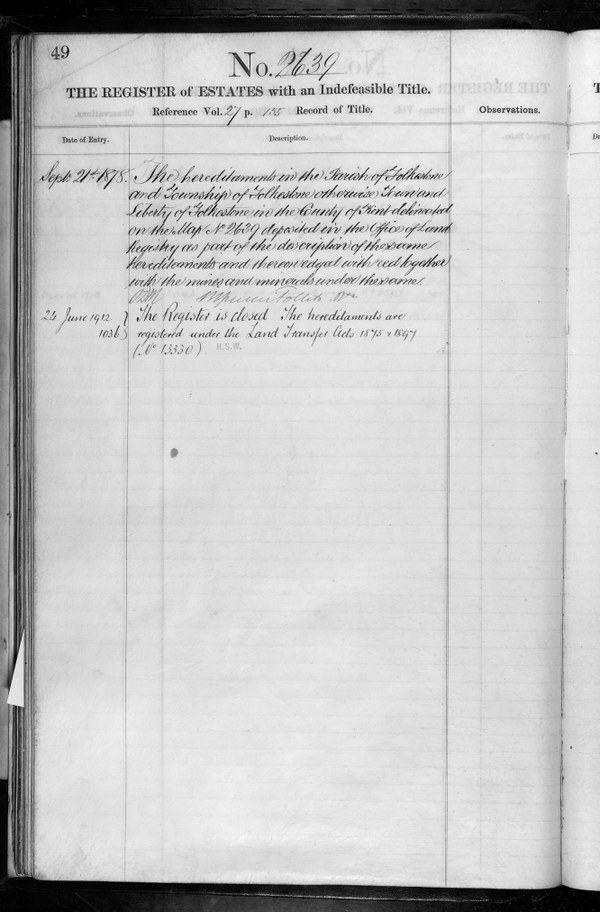 49
No. 2639
THE REGISTER of ESTATES with an Indefeasible Title.
Reference Vol. 27 p. 155 Record of Title.
Observations.
Date of Entry.
Description.
Sept. 21st 1878. The hereditaments in the Parish of Folkestone
and Township of Folkestone otherwise Town and
Liberty of Folkestone in the County of Kent delineated
on the Map No 2639 deposited in the Office of Land
Registry as part of the description of the same
hereditaments and thereon edged with red together
with the mines and minerals under the same.
Follett
24 June 1912 } The Register is closed The hereditaments are
1036 } registered under the Land Transfer Acts 1875 & 1897
(No 13330) H.S.W.